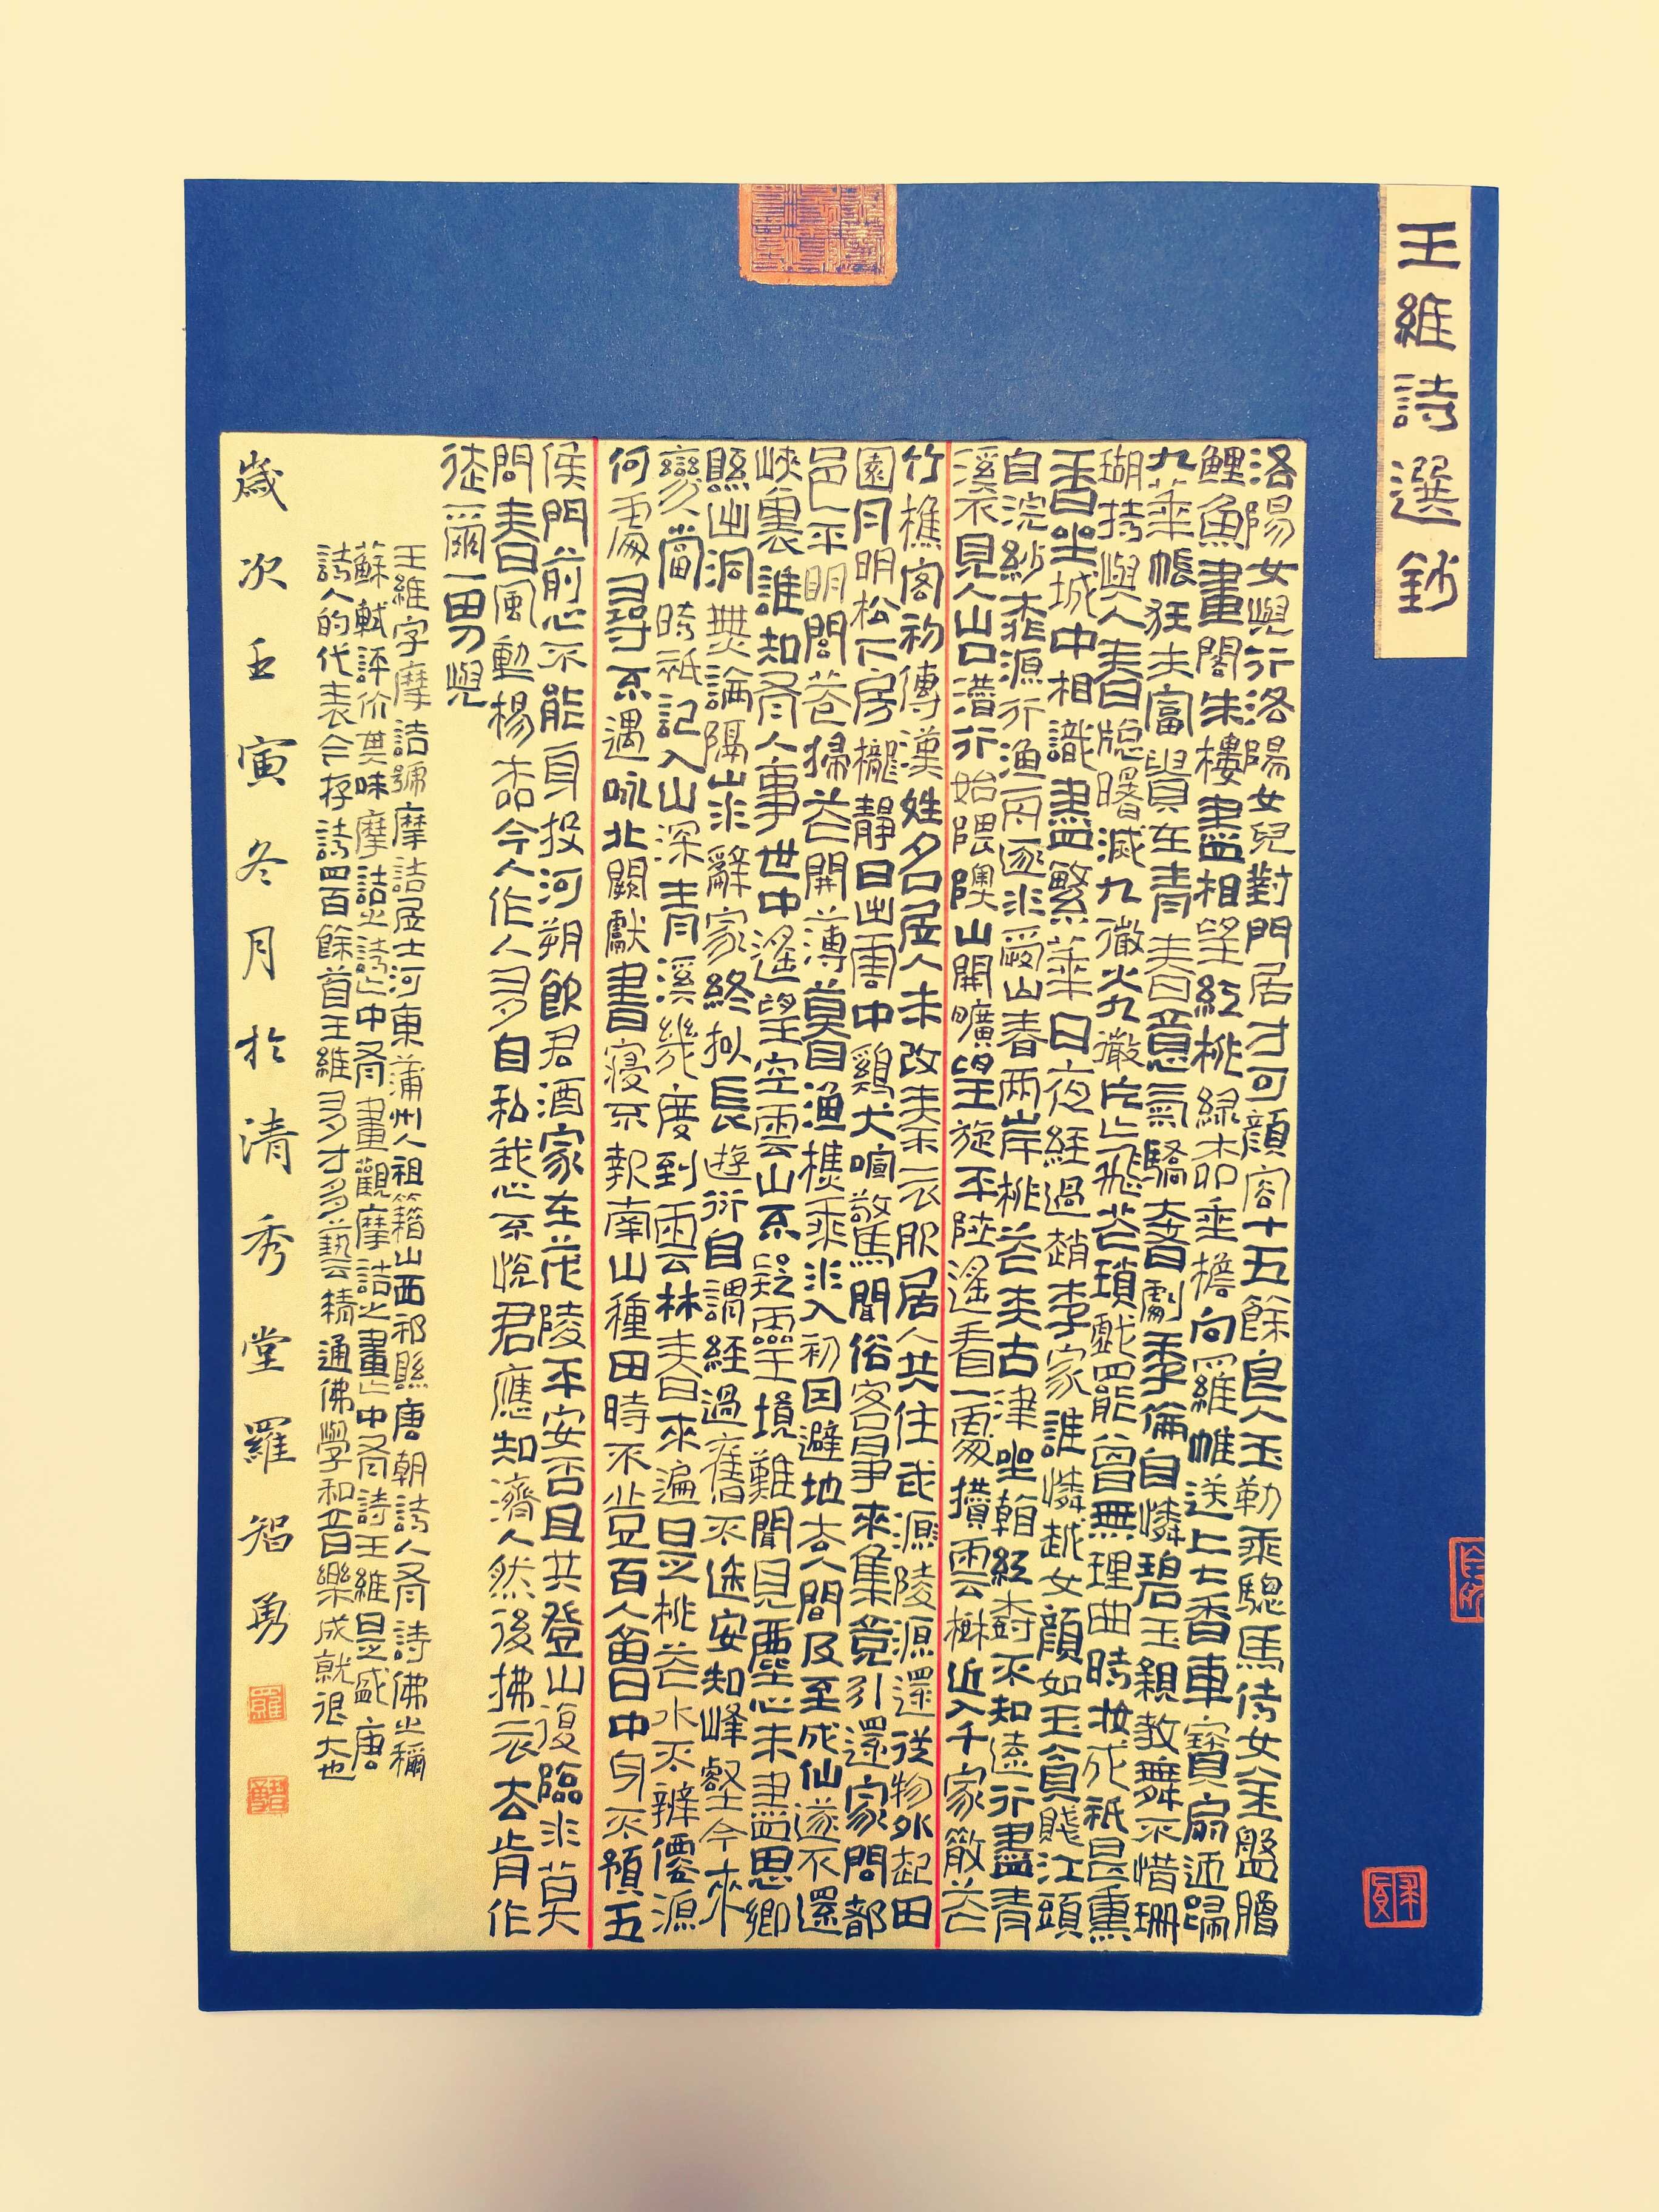 王維詩選鈔
洛陽女兒行洛陽女兒對門居才可顏容十五餘良人玉勒乘驄馬侍女金盤膾
鯉魚畫閣朱樓盡相望紅桃綠柳垂檐向羅帷送上七香車寶扇迎歸
九華帳狂夫富貴在青春意氣驕奢劇季倫自憐碧玉親教舞不惜珊
瑚持與人春窗曙滅九微火九微片片飛花瑣戲罷曾無理曲時妝成祇是熏
香坐城中相識盡繁華日夜經過趙李家誰憐越女顏如玉貧賤江頭
自浣紗桃源行漁舟逐水愛山春兩岸桃花夾古津坐看紅樹不知遠行盡青
溪不見人山口潛行始隈隩山開曠望旋平陸遙看一處攢雲樹近入千家散花
竹樵客初傳漢姓名居人未改秦衣服居人共住武源陵源還從物外起田
園月明松下房櫳靜日出雲中雞犬喧驚聞俗客爭來集競引還家問都
邑平明閭巷掃花開薄暮漁樵乘水入初因避地去人間及至成仙遂不還
峽裏誰知有人事世中遙望空雲山不疑靈境難聞見塵心未盡思鄉
縣出洞無論隔山水辭家終擬長遊衍自謂經過舊不迷安知峰壑今來
變當時祇記入山深青溪幾度到雲林春來遍是桃花水不辨僊源
何處尋不遇咏北闕獻書寢不報南山種田時不登百人會中身不預五
侯門前心不能身投河朔飲君酒家在茂陵平安否且共登山復臨水莫
問春風動楊柳今人作人多自私我心不悅君應知濟人然後拂衣去肯作
徒爾一男兒
王維字摩詰號摩詰居士河東蒲州人祖籍山西祁縣唐朝詩人有詩佛之稱
蘇軾評价其味摩詰之詩詩中有畫觀摩詰之畫畫中有詩王維是盛唐
詩人的代表今存詩四百餘首王維多才多藝精通佛學和音樂成就很大也
歲次壬寅冬月於清秀堂羅智勇